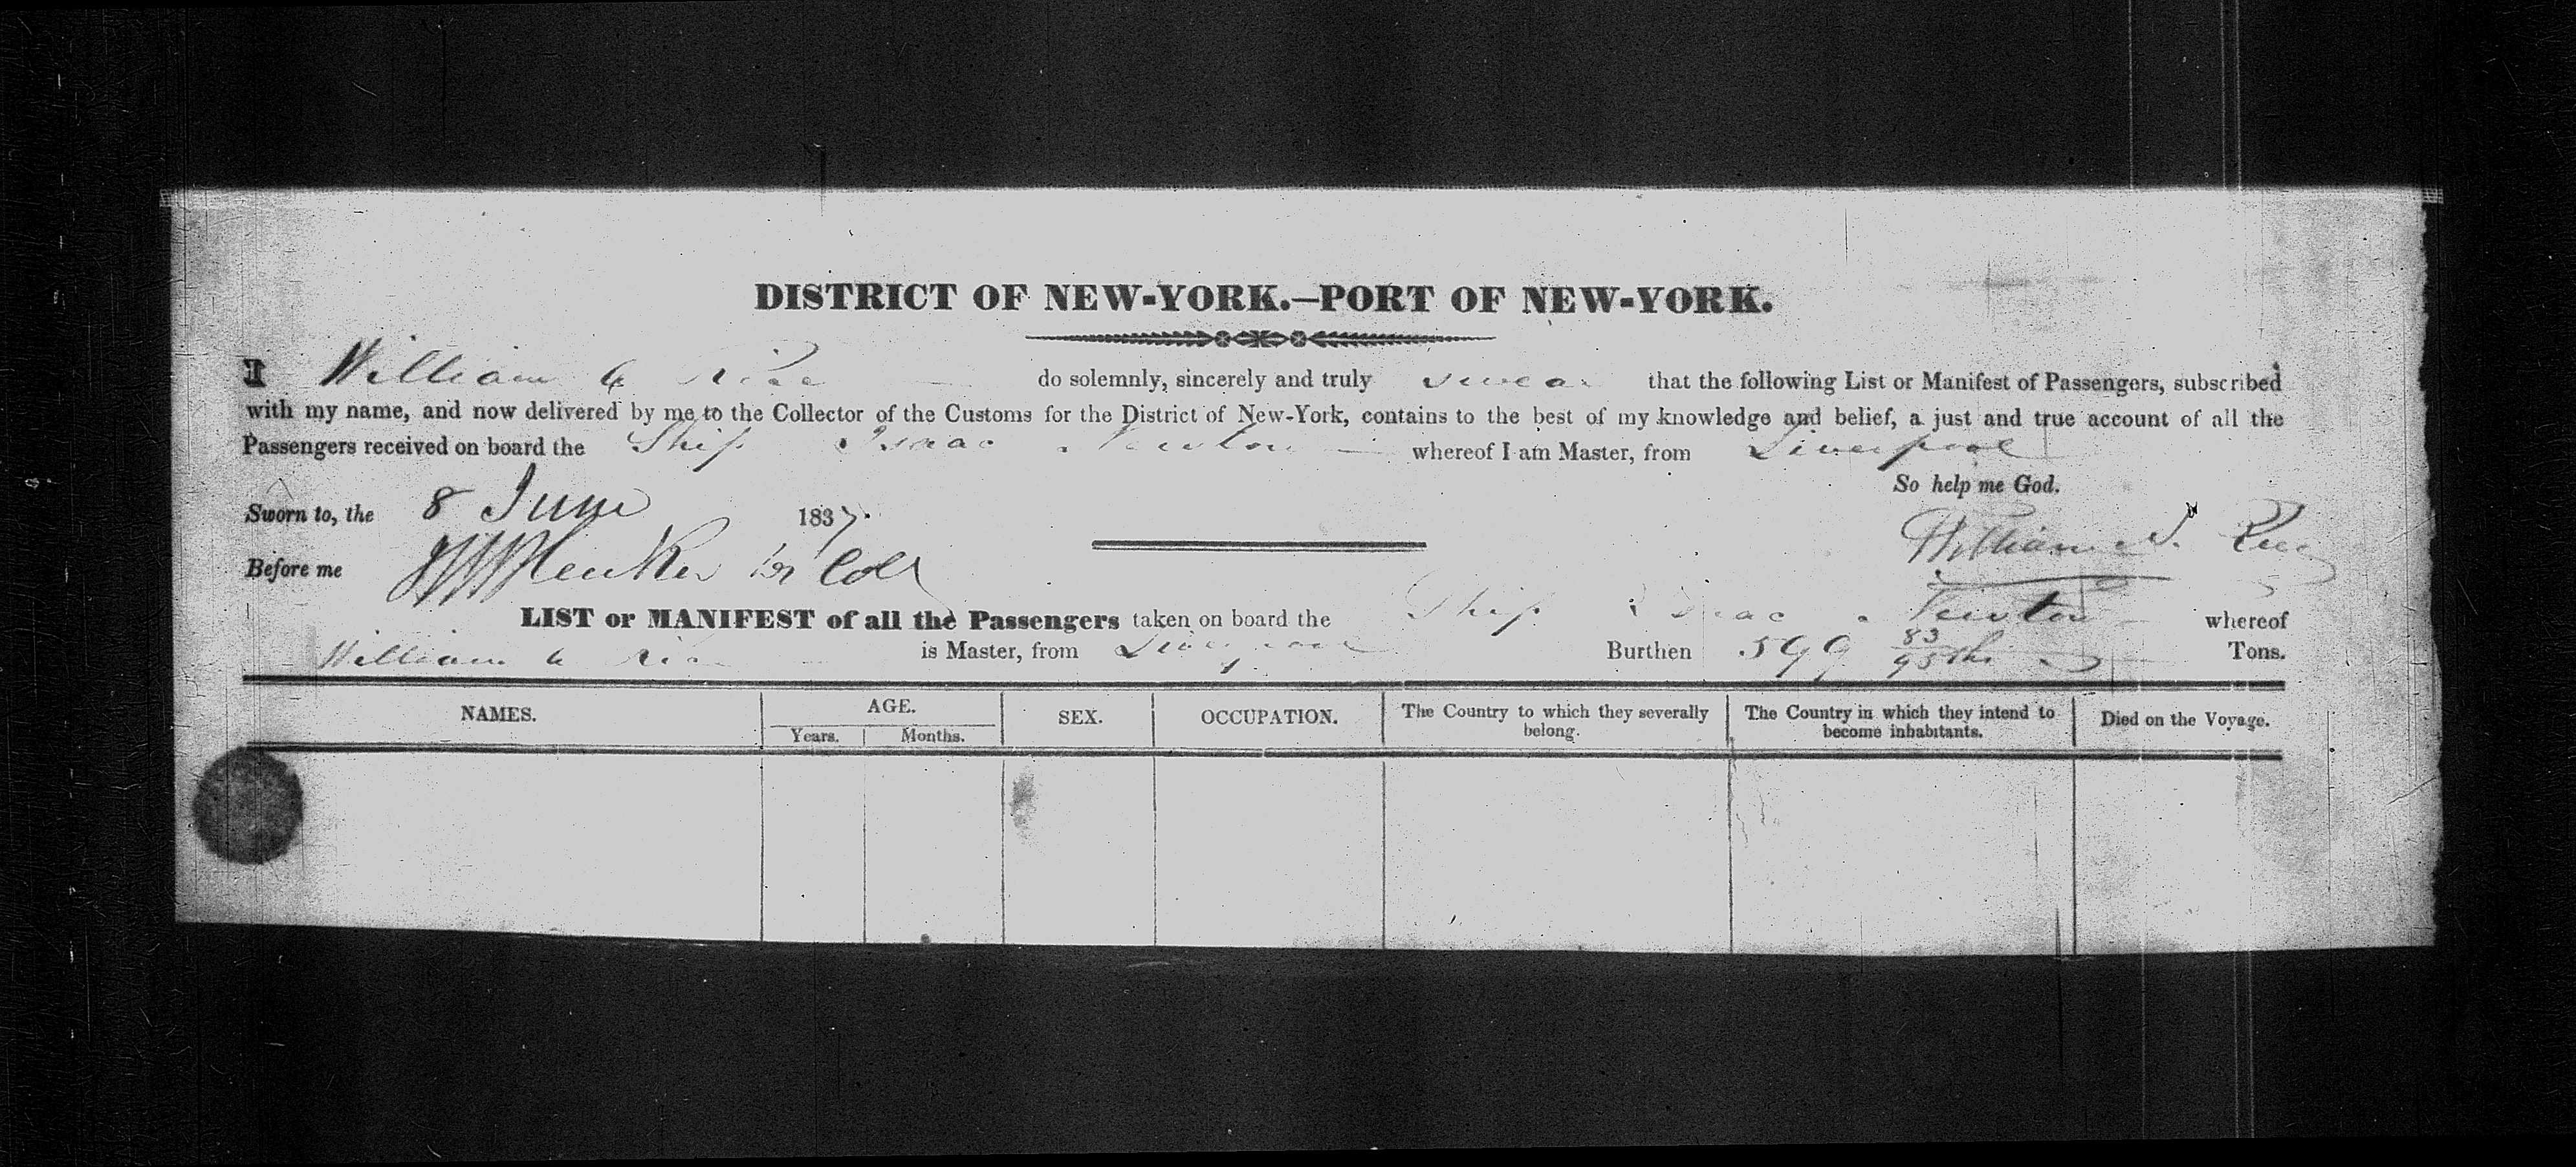 DISTRICT OF NEW-YORK.—PORT OF NEW-YORK.
I William do solemnly, sincerely and truly swear that the following List or Manifest of Passengers, subscribed
with my name, and now delivered by me to the Collector of the Customs for the District of New-York, contains to the best of my knowledge and belief, a just and true account of all the
Passengers received on board the Ship Isaac Newton whereof I am Master, from Liverpool
So help me God.
Sworn to, the 8 June 1837.
William
Before me
LIST or MANIFEST of all the Passengers taken on board the Ship Isaac Newton whereof
William is Master, from Liverpool Burthen 599 83/95ths Tons.
NAMES. AGE. SEX. OCCUPATION. The Country to which they severally belong. The Country in which they intend to become inhabitants. Died on the Voyage.
Years. Months.